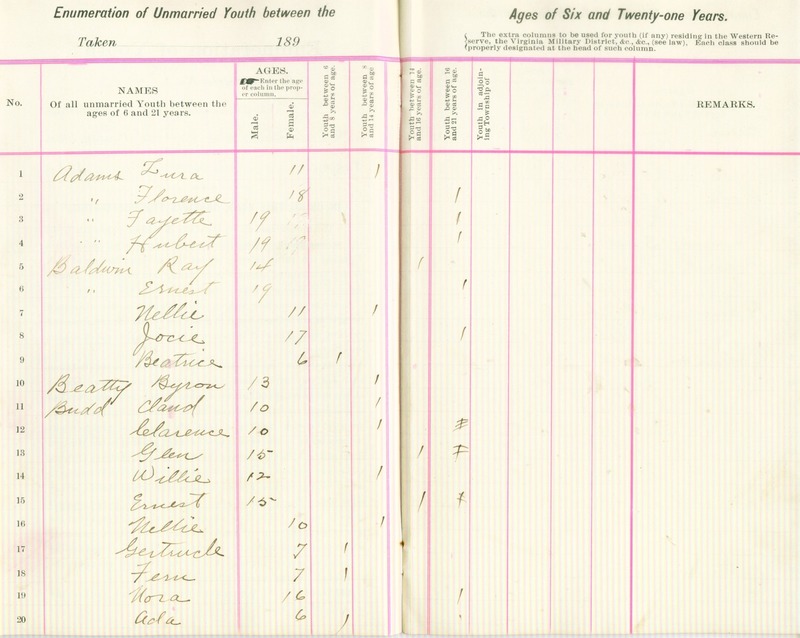 Enumeration of Unmarried Youth between the Ages of Six and Twenty-one Years.
Taken 189
The extra columns to be used for youth (if any) residing in the Western Re-
serve, the Virginia Military District, &c., &c., (see law). Each class should be
properly designated at the head of such column.
No.
NAMES
Of all unmarried Youth between the
ages of 6 and 21 years.
AGES.
Enter the age
of each in the prop-
er column.
Male.
Female.
Youth between 6
and 8 years of age.
Youth between 8
and 14 years of age.
Youth between 14
and 16 years of age.
Youth between 16
and 21 years of age.
Youth in adjoin-
ing Township of
REMARKS.
1 Adams Zura 11 1
2 " Florence 18 1
3 " Fayette 19 1
4 " Hubert 19 1
5 Baldwin Ray 14 1
6 " Ernest 19 1
7 Nellie 11 1
8 Jocie 17 1
9 Beatrice 6 1
10 Beatty Byron 13 1
11 Budd Claud 10 1
12 Clarence 10 1
13 Glen 15 1
14 Willie 12 1
15 Ernest 15 1
16 Nellie 10 1
17 Gertrude 7 1
18 Fern 7 1
19 Nora 16 1
20 Ada 6 1